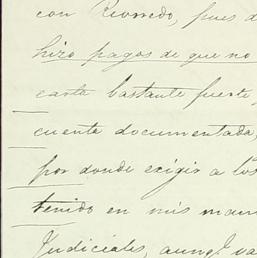 con Reorredo, pues d
hizo pagos de que no
carta bastante fuerte
cuenta documentada,
por donde exigir a los
tenido en mis man
Judiciales, aunq.e va